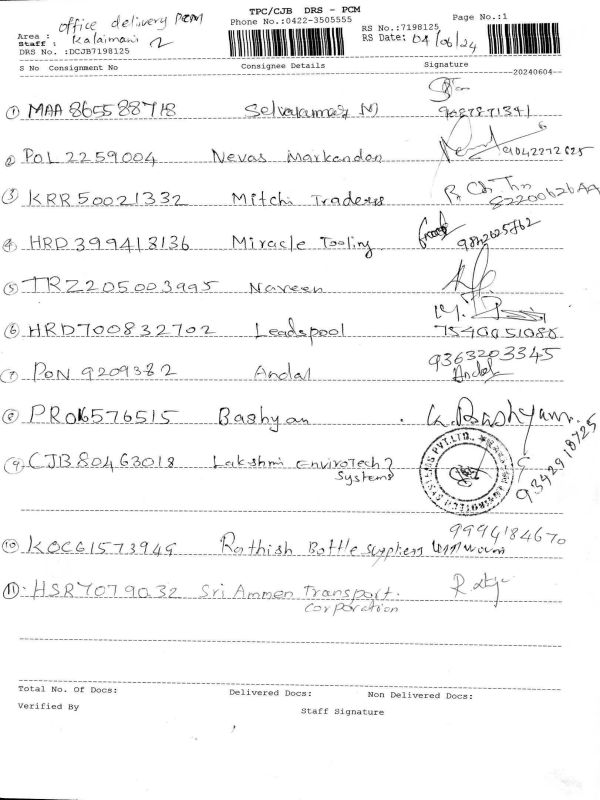 TPC/CJB DRS - PCM
office delivery PCM
Phone No.:0422-3505555
Page No.:1
RS No.:7198125
Area :
Staff : Kalaimani 2
RS Date: 04/06/24
DRS No. :DCJB7198125
S No Consignment No Consignee Details Signature
20240604
1 MAA 865588718 Selvakumar M
2 POL 2259004 Nevas Markandan
3 KRR 50021332 Mitchi Traders
4 HRD 399413136 Miracle Tooling
5 TRZ205003995 Naveen
6 HRD700832702 Leadspool
9363203345
7 PON 9209382 Andal Andal
8 PRO6576515 Bashyan K. Bashyam
9 CJB 80463018 Lakshmi EnviroTech
Systems
9342918725
9994184670
10 KOC61573949 Rathish Bottle suppliers
11 HSR7079032 Sri Ammen Transport.
Corporation
Total No. Of Docs: Delivered Docs: Non Delivered Docs:
Verified By Staff Signature